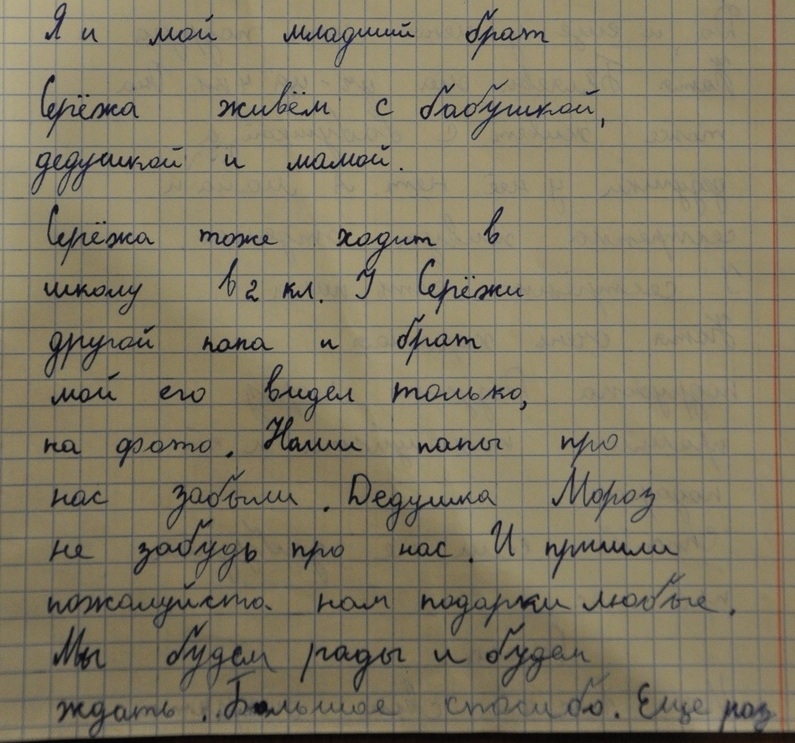 Я и мой младший брат
Серёжа живём с бабушкой,
дедушкой и мамой.
Серёжа тоже ходит в
школу в 2 кл. У Серёжи
другой папа и брат
мой его видел только,
на фото. Наши папы про
нас забыли. Дедушка Мороз
не забудь про нас. И пришли
пожалуйкста нам подарки любые.
Мы будем рады и будем
ждать. Большое спасибо. Еще раз